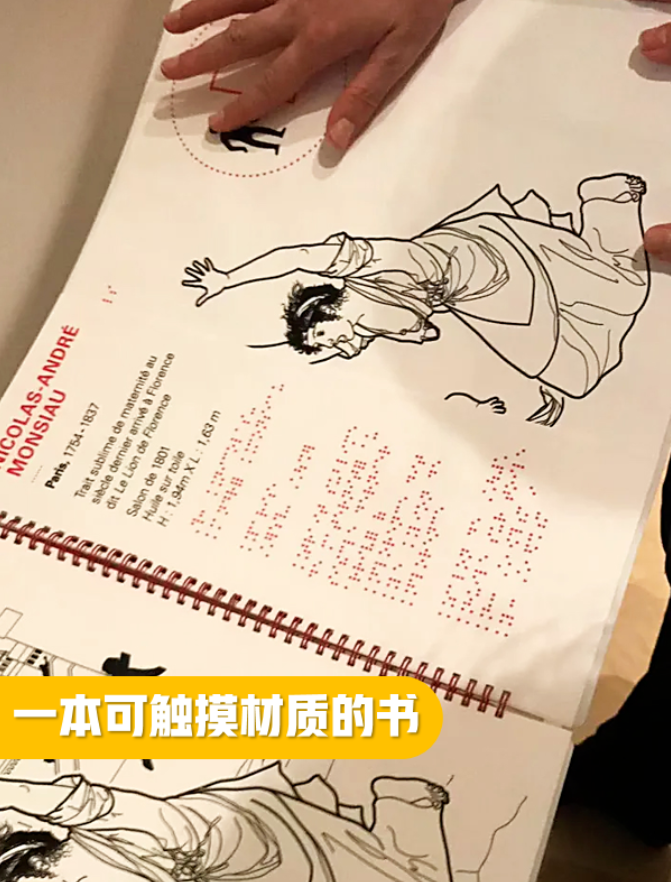 NICOLAS-ANDRÉ
MONSIAU
Paris, 1754-1837
Trait sublime de maternité au
siècle dernier arrivé à Florence
dit Le Lion de Florence
Salon de 1801
Huile sur toile
H : 1,94m X L : 1,63 m
一本可触摸材质的书